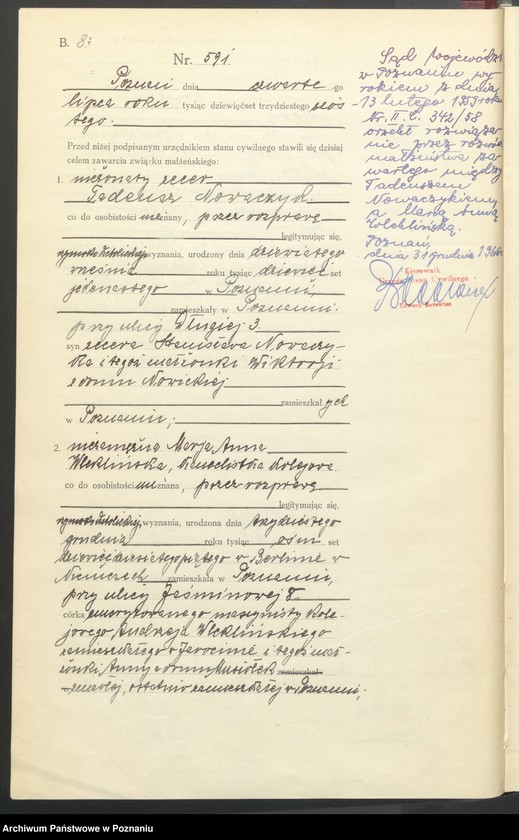 B. 87
Nr. 591
Poznań dnia czwarte go
lipca roku tysiąc dziewięćset trzydziestego szós
tego.
Przed niżej podpisanym urzędnikiem stanu cywilnego stawili się dzisiaj
celem zawarcia związku małżeńskiego:
1. nieżonaty
Tadeusz Nowaczyk
co do osobistości znany, przez rozprawę
legitymując się,
rzymsko katolickiej wyznania, urodzony dnia dziewiątego
września roku tysiąc dziewięć set
jedenastego w Poznaniu,
zamieszkały w Poznaniu
przy ulicy Długiej 3
syn Stanisława Nowaczy-
ka i tegoż małżonki Wiktorji
z domu Nowickiej
zamieszkał ych
w Poznaniu,
2. niezamężna Marja Anna
Wleklińska, kolejowa
co do osobistości znana, przez rozprawę
legitymując się,
rzymsko katolickiej wyznania, urodzona dnia trzydziestego
grudnia roku tysiąc ośm set
dziewięćdziesiątego piątego w Berlinie w
Niemczech zamieszkała w Poznaniu,
przy ulicy Jaśminowej 8
córka emerytowanego maszynisty kole-
jowego Andrzeja Wleklińskiego
zamieszkałego w Jarocinie i tegoż mał-
żonki Anny z domu Musiołek zamieszkał
zmarłej, ostatnio zamieszkałej w Poznaniu,
Sąd Wojewódzki
w Poznaniu wy
rokiem z dnia
13 lutego 1959 roku
Nr. II. C. 342/58
orzekł rozwiąza
nie przez rozwód
małżeństwa za
wartego między
Tadeuszem
Nowaczykiem
a Marią Anną
Wleklińską.
Poznań,
dnia 31 grudnia 1960
Kierownik
Urzędu Stanu Cywilnego
Archiwum Państwowe w Poznaniu
genealogiawarchiwach.pl